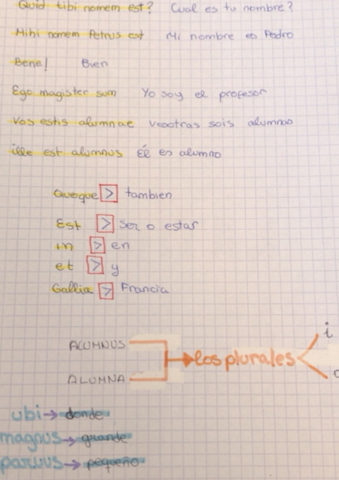 Quid tibi nomem est? Cual es tu nombre?
Mihi nomem Petrus est Mi nombre es Pedro
Bene! Bien
Ego magister sum Yo soy el profesor
Vos estis alumnae vosotras sois alumnas
ille est alumnus Él es alumno
Quoque > tambien
Est > Ser o estar
in > en
et > y
Gallia > Francia
ALUMNUS
ALUMNA
los plurales
i
ubi → donde
magnus → grande
parvus → pequeño